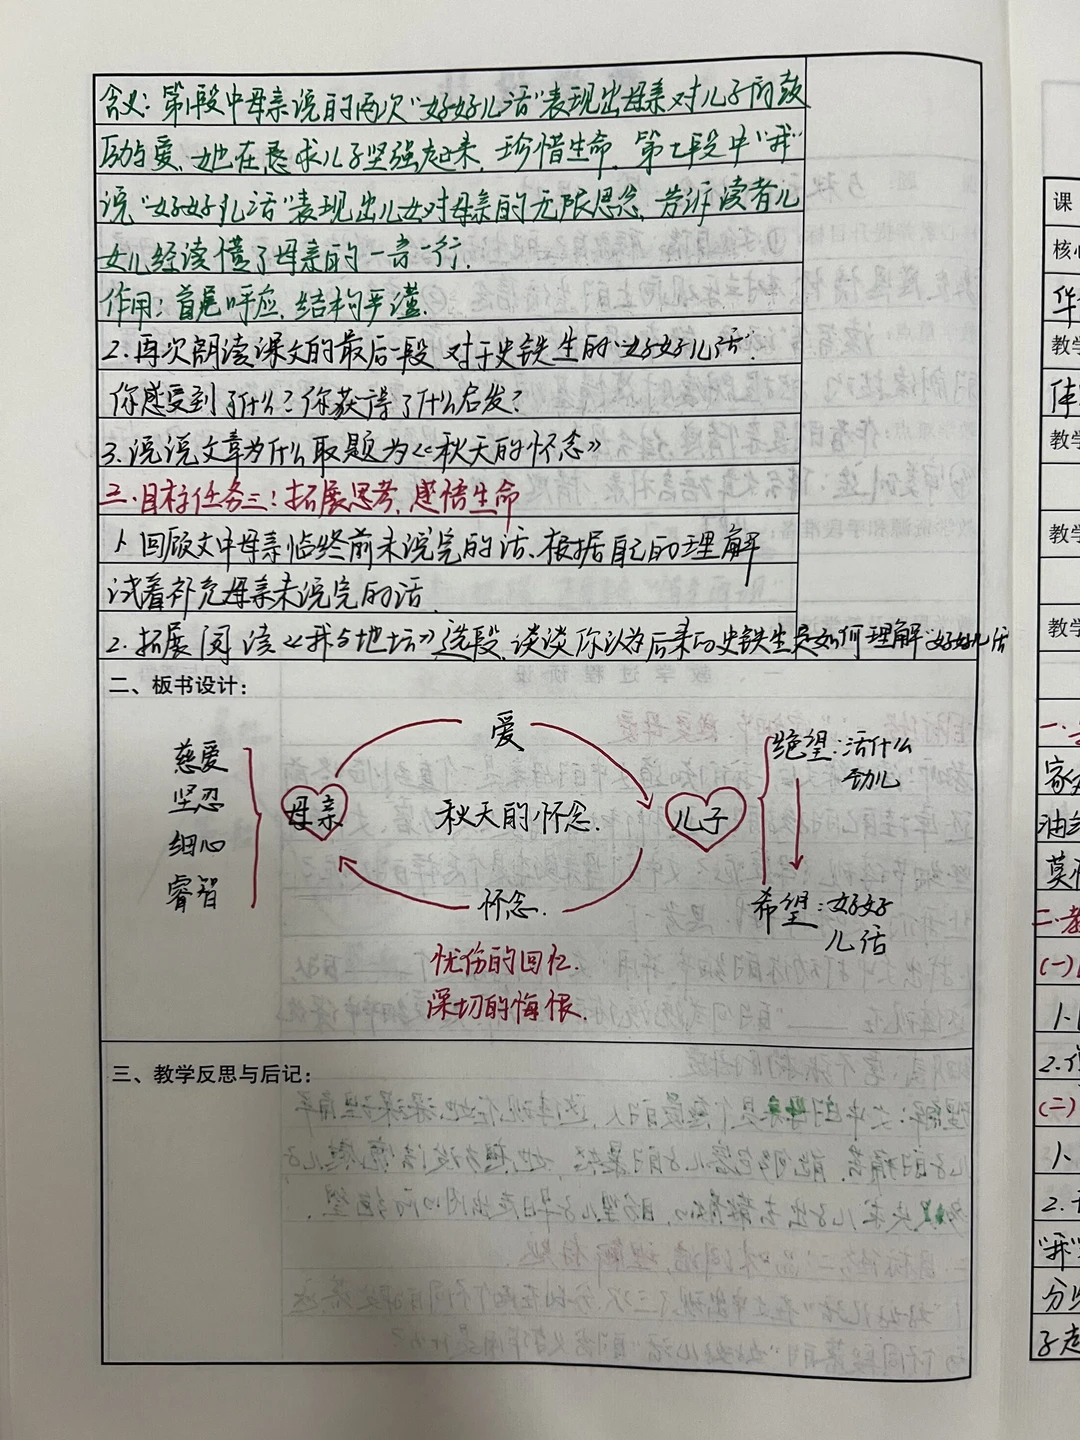 含义：第1段中母亲说的两次“好好儿活”表现出母亲对儿子的鼓
励与爱、她在恳求儿子坚强起来、珍惜生命、第七段中“我”
说“好好儿活”表现出儿女对母亲的无限思念、告诉读者儿
女儿经读懂了母亲的一言一行.
作用：首尾呼应、结构严谨.
2.再次朗读课文的最后一段 对于史铁生的“好好儿活”.
你感受到了什么？你获得了什么启发？
3.说说文章为什么取题为《秋天的怀念》
三.目标任务三：拓展思考、感悟生命
1.回顾文中母亲临终前未说完的话、根据自己的理解
试着补充母亲未说完的话.
2.拓展阅读《我与地坛》选段、谈谈你认为后来的史铁生是如何理解“好好儿活
二、板书设计：
慈爱
坚忍
细心
睿智
母亲
爱
秋天的怀念.
怀念.
儿子
绝望：活什么
劲儿
希望：好好
儿活
忧伤的回忆.
深切的悔恨.
三、教学反思与后记：
课
核心
华
教学
体
教学
教学
教学
家
油
莫
二.教
(一)
1.
2.
(二)
1.
2.
分
子